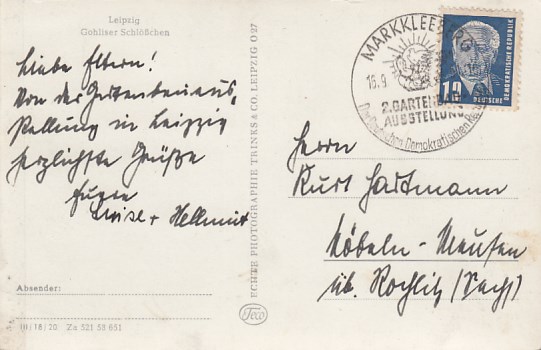 Leipzig
Gohliser Schlößchen
Liebe Eltern!
Von der Gartenbauaus,
stellung in Leipzig
herzlichste Grüße
Eure
Luise + Hellmut
Absender:
III/18/20 Za 521 58 651
ECHTE PHOTOGRAPHIE TRINKS & CO. LEIPZIG O 27
Trico
MARKKLEEBERG
16.9
2. GARTENBAU
AUSSTELLUNG
Der Deutschen Demokratischen Rep
DEUTSCHE
DEMOKRATISCHE REPUBLIK
12
Herrn
Kurt Hartmann
Döbeln - Meusen
üb. Rochlitz (Sachs)